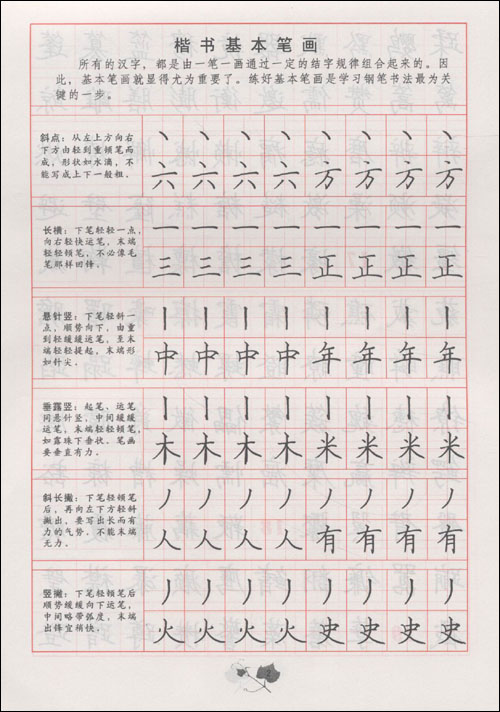 楷书基本笔画
所有的汉字，都是由一笔一画通过一定的结字规律组合起来的。因
此，基本笔画就显得尤为重要了。练好基本笔画是学习钢笔书法最为关
键的一步。
斜点：从左上方向右
下方由轻到重顿笔而
成，形状如水滴，不
能写成上下一般粗。
丶丶丶丶丶丶丶丶
六六六六万万万万
长横：下笔轻轻一点，
向右轻快运笔，末端
轻轻顿笔，不必像毛
笔那样回锋。
一一一一一一一一
三三三三正正正正
悬针竖：下笔轻斜一
点，顺势向下，由重
到轻缓缓运笔，至末
端轻轻提起，末端形
如针尖。
丨丨丨丨丨丨丨丨
中中中中年年年年
垂露竖：起笔、运笔
同悬针竖，中间缓缓
运笔，末端轻轻顿笔，
如露珠下垂状。笔画
要垂直有力。
丨丨丨丨丨丨丨丨
木木木木米米米米
斜长撇：下笔轻顿笔
后，再向左下方轻斜
撇出，要写出长而有
力的气势，不能末端
无力。
丿丿丿丿丿丿丿丿
人人人人有有有有
竖撇：下笔轻顿笔后
顺势缓缓向下运笔，
中间略带弧度，末端
出锋宜稍快。
丿丿丿丿丿丿丿丿
火火火火史史史史